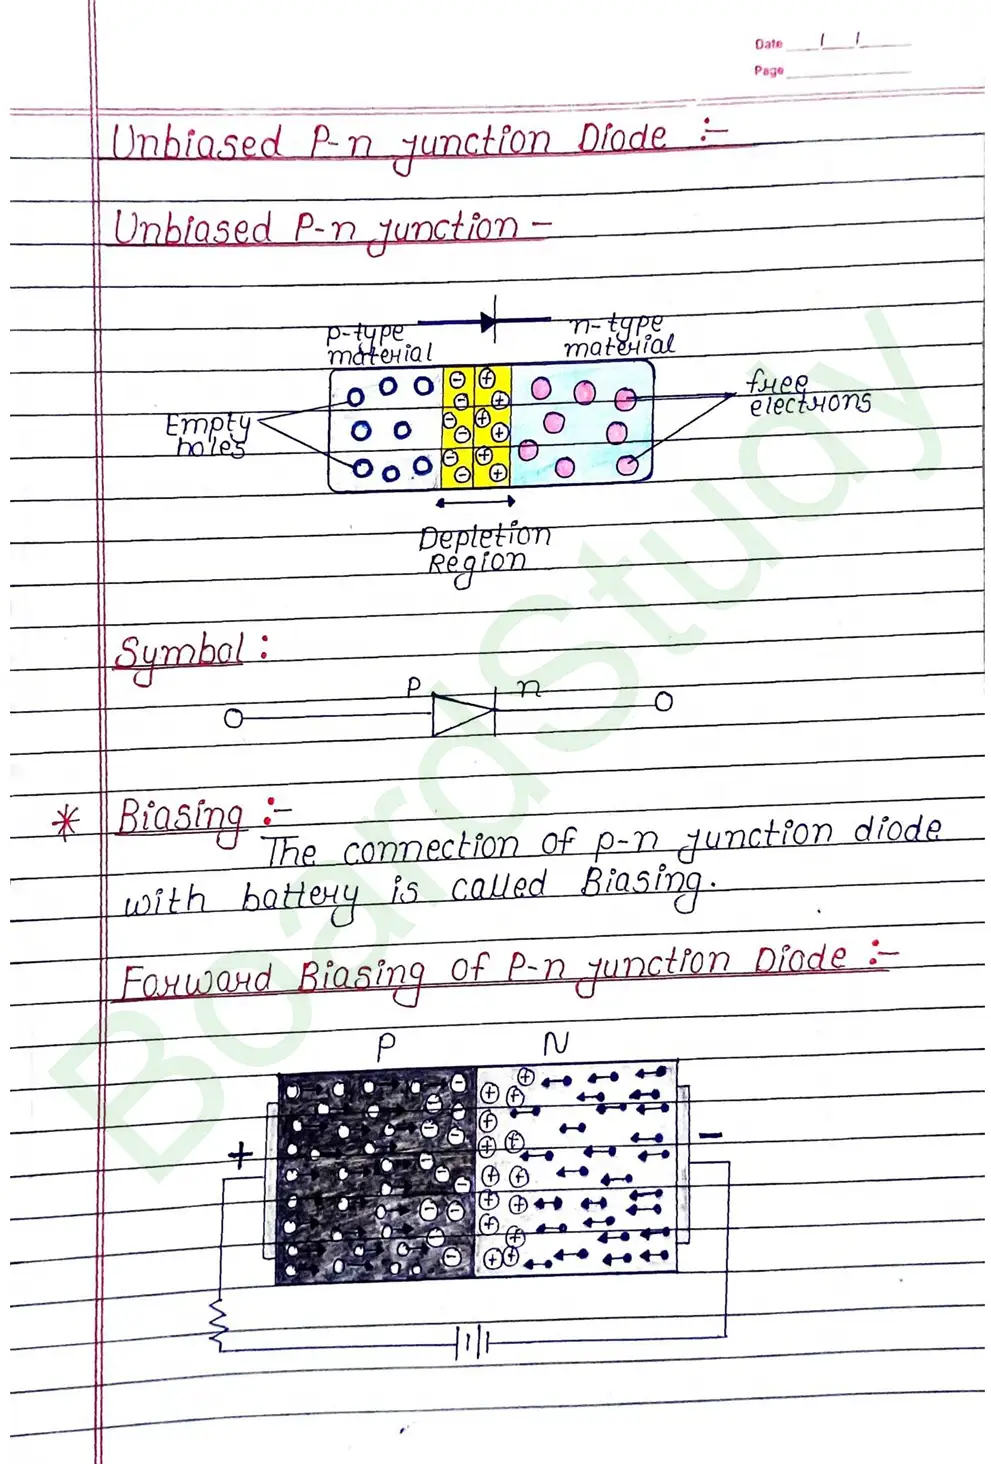 Date / /
Page
Unbiased P-n junction Diode :-
Unbiased P-n junction -
p-type
material
n-type
material
Empty
holes
free
electrons
- +
Depletion
Region
Symbol :
P n
* Biasing :-
The connection of p-n junction diode
with battery is called Biasing.
Forward Biasing of P-n junction Diode :-
P N
+ -
BoardStudy